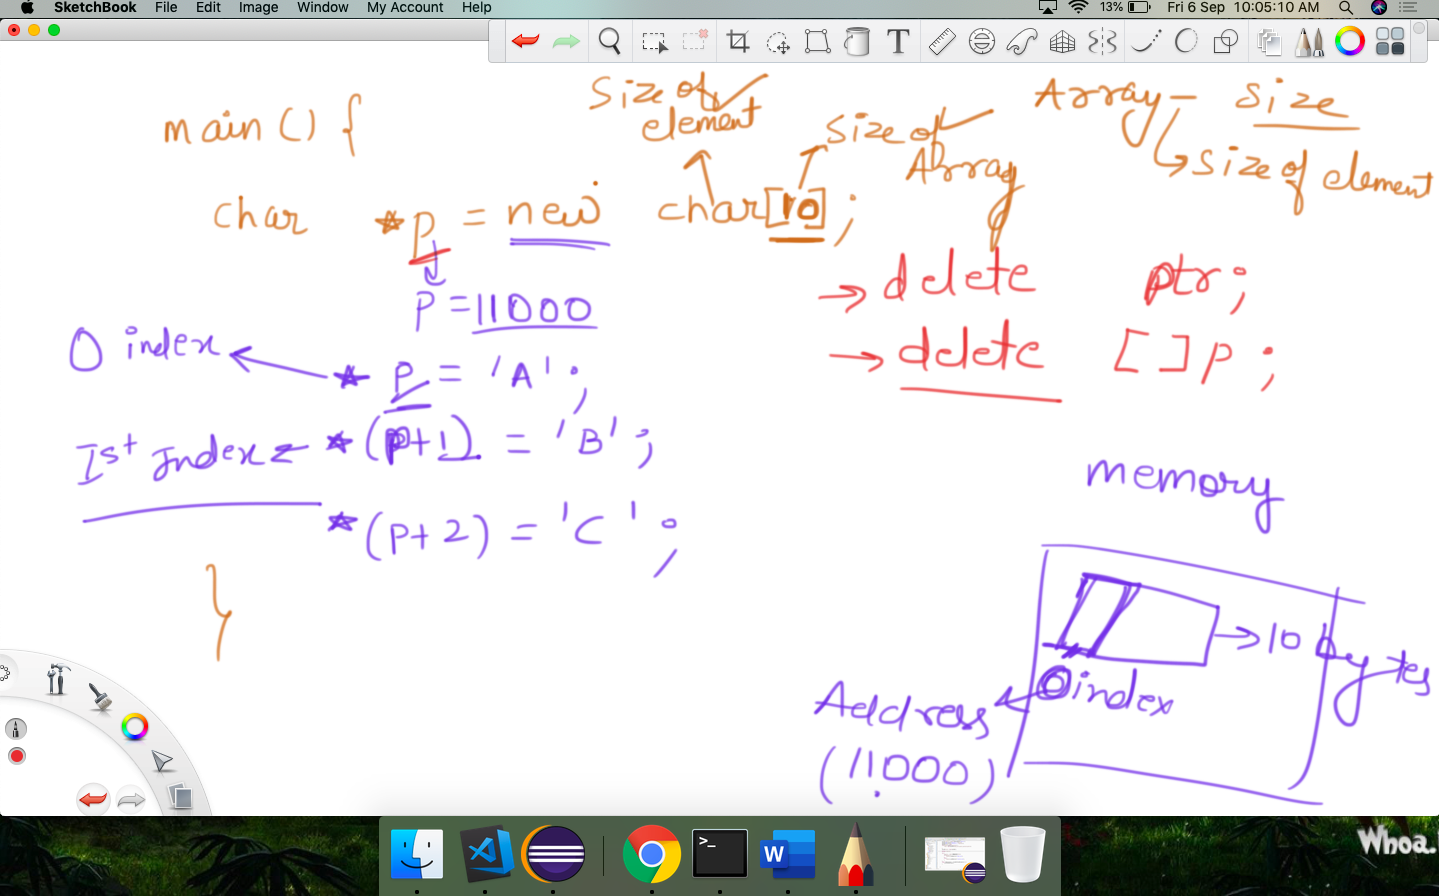 SketchBook File Edit Image Window My Account Help 13% Fri 6 Sep 10:05:10 AM
T
main() {
Size of element
Size of Array
Array - Size
Size of element
char *p = new char[10];
P = 11000
delete ptr;
delete []p;
0 index
*p = 'A';
Ist Index
*(p+1) = 'B';
*(p+2) = 'C';
}
memory
10 bytes
0index
Address
(11000)
>_
W
Whoa.